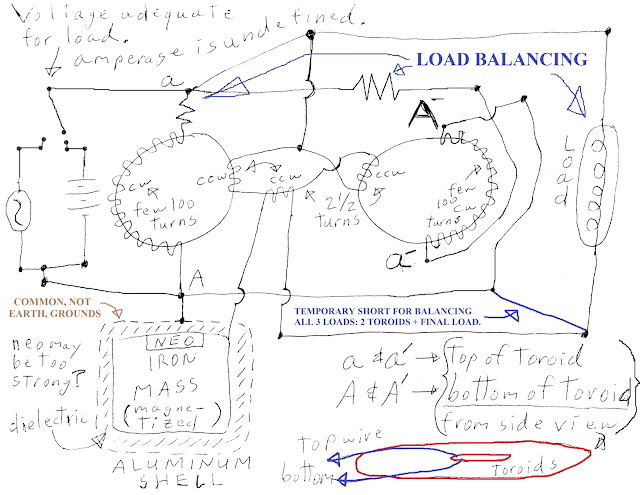 Voltage adequate
for load.
amperage is undefined.
a
LOAD BALANCING
A-
Load
ccw
few 100
turns
ccw
A
ccw
2 1/2
turns
ccw
few
100
cw
turns
a-
A
COMMON, NOT
EARTH, GROUNDS
TEMPORARY SHORT FOR BALANCING
ALL 3 LOADS: 2 TOROIDS + FINAL LOAD.
neo may
be too
strong?
dielectric
NEO
IRON
MASS
(magne-
tized)
ALUMINUM
SHELL
a & a' → top of Toroid
A & A' → bottom of Toroid
from side view
top wire
bottom
Toroids